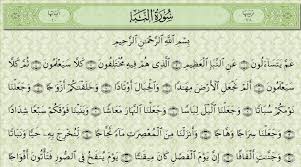 سُورَةُ النَّبَإِ
بِسْمِ اللَّهِ الرَّحْمَٰنِ الرَّحِيمِ
عَمَّ يَتَسَآءَلُونَ عَنِ النَّبَإِ الْعَظِيمِ الَّذِى هُمْ فِيهِ مُخْتَلِفُونَ كَلَّا سَيَعْلَمُونَ ثُمَّ كَلَّا
سَيَعْلَمُونَ أَلَمْ نَجْعَلِ الْأَرْضَ مِهَٰدًا وَالْجِبَالَ أَوْتَادًا وَخَلَقْنَٰكُمْ أَزْوَٰجًا وَجَعَلْنَا
نَوْمَكُمْ سُبَاتًا وَجَعَلْنَا الَّيْلَ لِبَاسًا وَجَعَلْنَا النَّهَارَ مَعَاشًا وَبَنَيْنَا فَوْقَكُمْ سَبْعًا شِدَادًا
وَجَعَلْنَا سِرَاجًا وَهَّاجًا وَأَنزَلْنَا مِنَ الْمُعْصِرَٰتِ مَآءً ثَجَّاجًا لِّنُخْرِجَ بِهِۦ حَبًّا وَنَبَاتًا
وَجَنَّٰتٍ أَلْفَافًا إِنَّ يَوْمَ الْفَصْلِ كَانَ مِيقَٰتًا يَوْمَ يُنفَخُ فِى الصُّورِ فَتَأْتُونَ أَفْوَاجًا